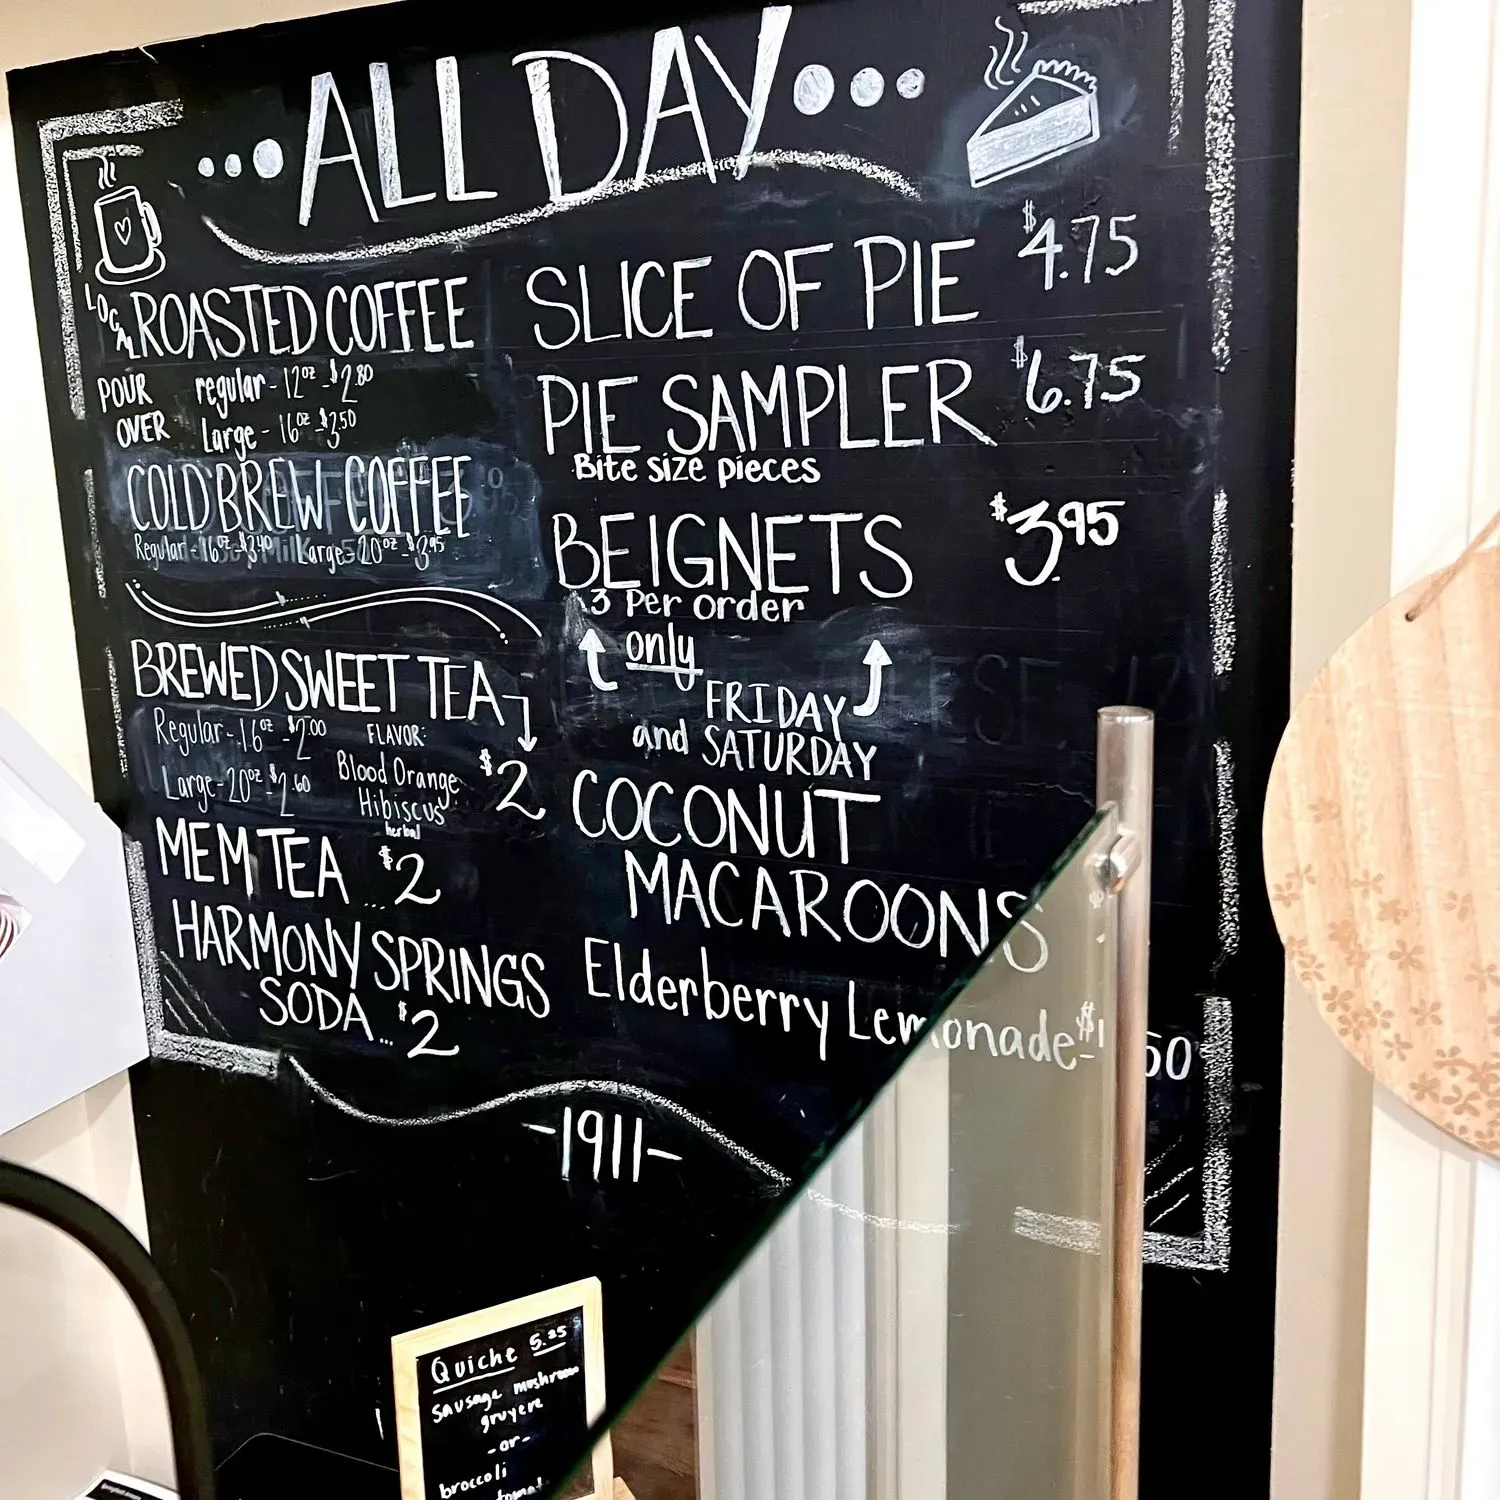 ...ALL DAY...
LOCAL ROASTED COFFEE
POUR OVER
regular - 12oz - $2.80
Large - 16oz - $3.50
COLD BREW COFFEE
Regular - 16oz - $3.40 Large - 20oz - $3.95
BREWED SWEET TEA
Regular - 16oz - $2.00
Large - 20oz - $2.60
FLAVOR:
Blood Orange
Hibiscus
herbal
$2
MEM TEA ... $2
HARMONY SPRINGS
SODA... $2
SLICE OF PIE $4.75
PIE SAMPLER $6.75
Bite size pieces
BEIGNETS $3.95
3 Per order
only
FRIDAY
and SATURDAY
COCONUT
MACAROONS
Elderberry Lemonade - $1 50
-1911-
Quiche 5.25
sausage mushroom
gruyere
-or-
broccoli